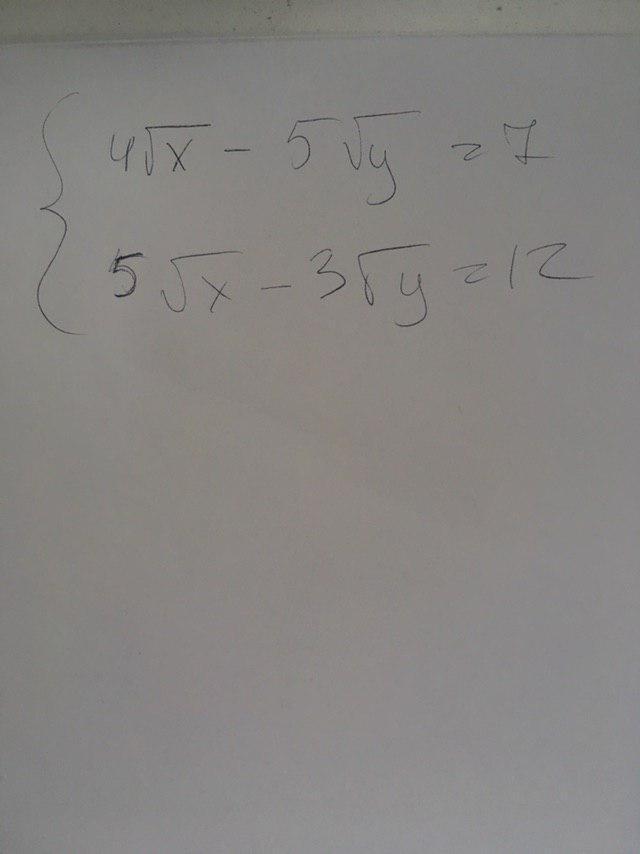 4√x - 5√y = 7
5√x - 3√y = 12